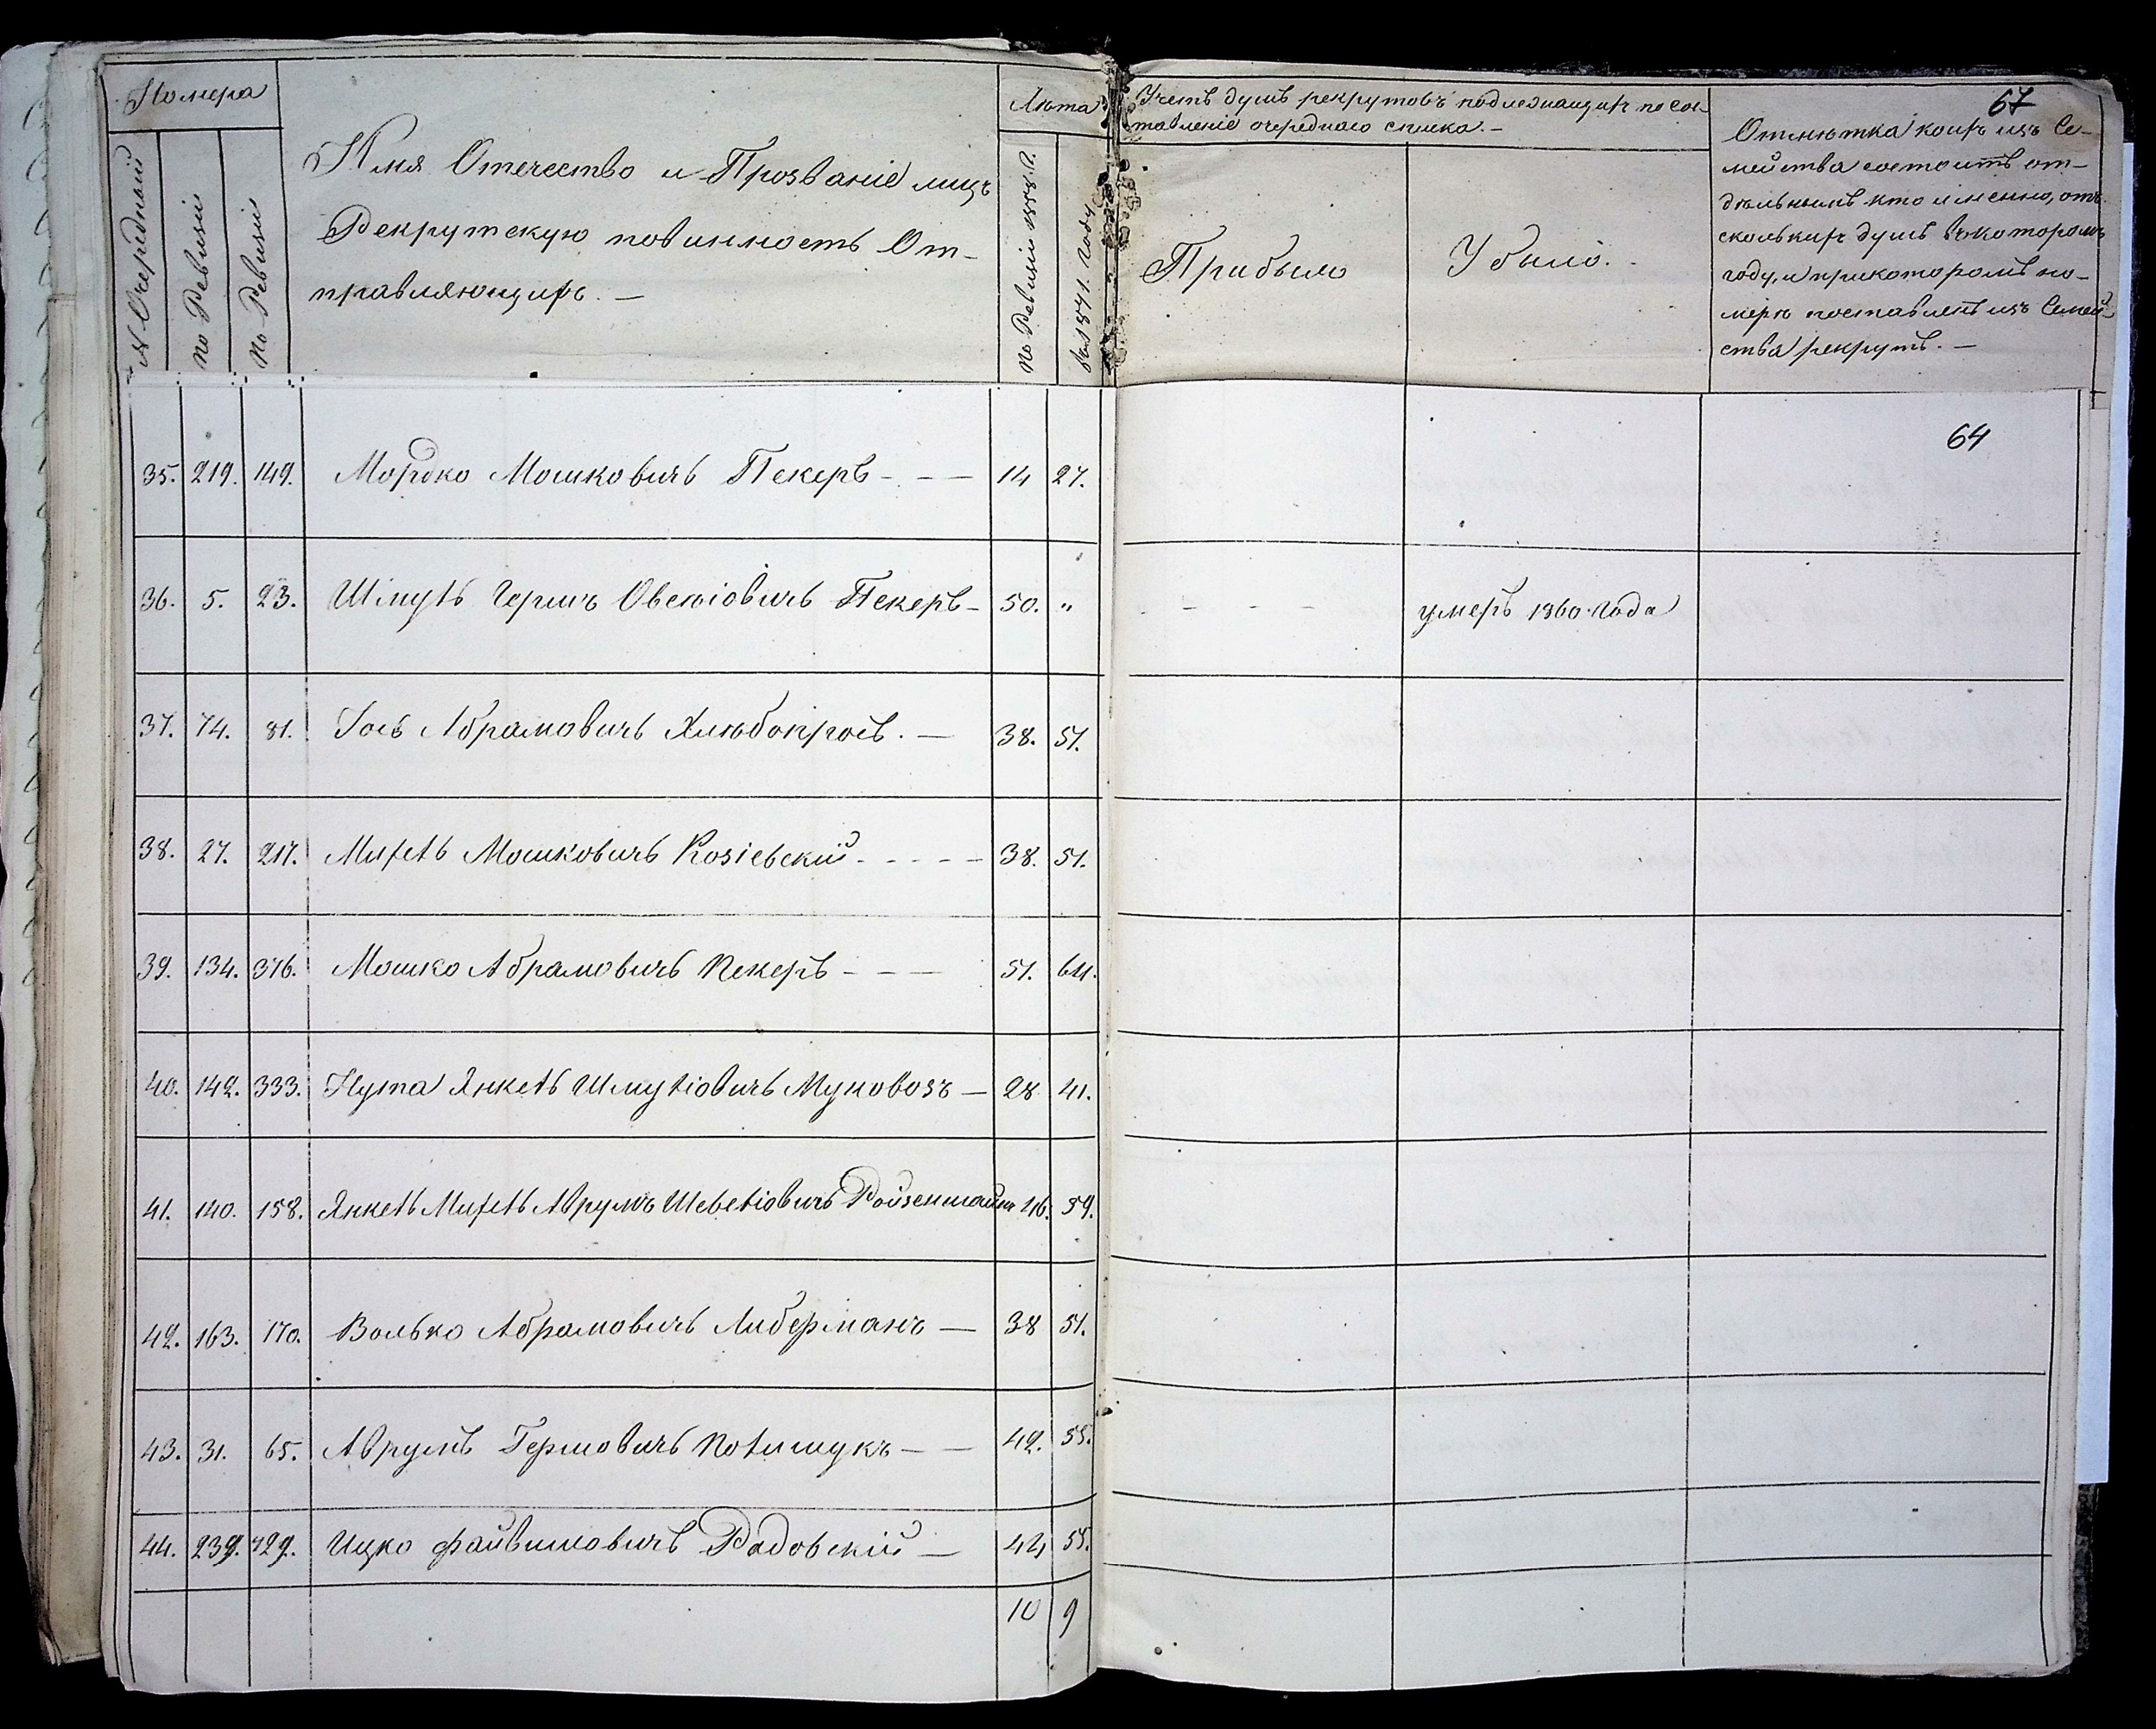 Номера
№ Очередный
по Ревизiи
по Ревизiи
Имя Отечество и Прозванiе лицъ
Рекрутскую повинность От-
правляющихъ. —
Лѣта
по Ревизiи 1858 г.
въ 1871. году
Учетъ душъ рекрутовъ подлежащихъ по сос-
тавленiе очереднаго списка. —
Прибыло
Убыло. -
67
Отмѣтка коихъ изъ Се-
мейства состоитъ от-
дѣльнымъ кто именно, отъ
сколькихъ душъ въкоторомъ
году, и прикоторомъ но-
мерѣ поставленъ изъ Семей-
ства рекрутъ. —
64
35. 219. 149. Мордко Мошковичъ Пекеръ - - — 14 27.
36. 5. 23. Шмулъ Гершъ Овсѣiовичъ Пекеръ - 50. „ - - - умеръ 1860 года
37. 74. 81. Iосъ Абрамовичъ Хлѣбопросъ. — 38. 51.
38. 27. 217. Михелъ Мошковичъ Козiевскiй - - - - - 38. 51.
39. 134. 376. Мошко Абрамовичъ Пекеръ - - — 51. 64.
40. 142. 333. Нута Янкелъ Шмулiовичъ Муковозъ — 28 41.
41. 140. 158. Янкелъ Михелъ Аврумъ Шевелiовичъ Ройзенштайнъ 46. 59.
42. 163. 170. Волько Абрамовичъ Либерманъ — 38 51.
43. 31. 65. Аврумъ Гершовичъ Полищукъ — — 42. 55.
44. 239. 429. Ицко Файвишовичъ Радовскiй — 42 55.
10 9